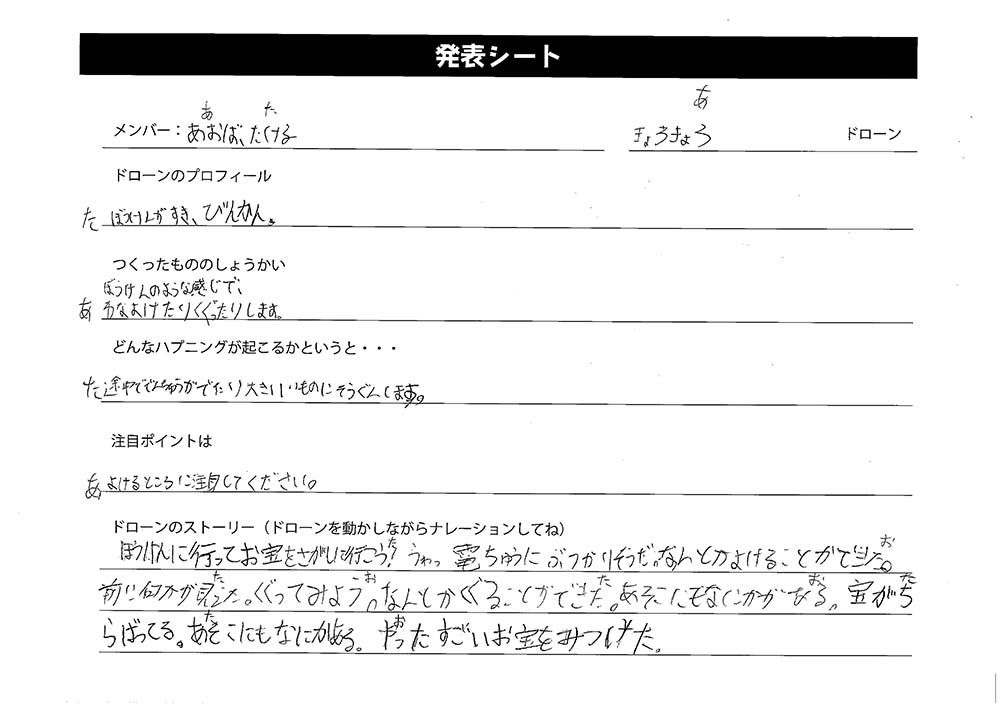 発表シート
あ た あ
メンバー：あおば、たける きょろきょろ ドローン
ドローンのプロフィール
た ぼうけんがすき、びんかん。
つくったもののしょうかい
ぼうけんのような感じで、
あ わなよけたりくぐったりします。
どんなハプニングが起こるかというと・・・
た 途中ででんちゅうがでたり大きいいものにそうぐんします。
注目ポイントは
あ よけるところに注目してください。
ドローンのストーリー（ドローンを動かしながらナレーションしてね）
ぼうけんに行ってお宝をさがしに行こう？うわっ電ちゅうにぶつかりそうだ。なんとかよけることができた。
前に何かが見えた。くぐってみよう。なんとかくぐることができた。あそこにもなにかがある。宝がち
らばってる。あそこにもなにかある。やったすごいお宝をみつけた。